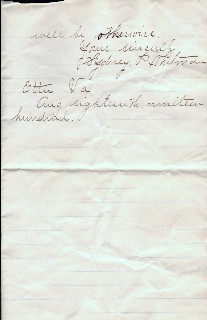 well be otherwise.
Your sincerly
Sydney P.
Va
Aug eighteenth nineteen
hundred.